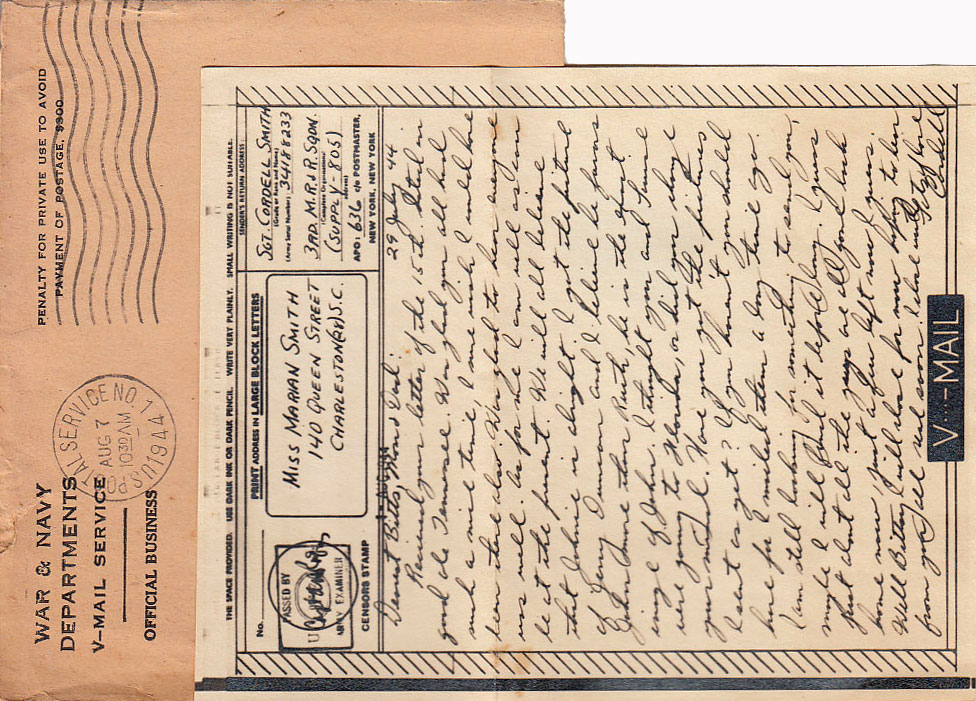 WAR & NAVY
DEPARTMENTS
V-MAIL SERVICE
OFFICIAL BUSINESS
PENALTY FOR PRIVATE USE TO AVOID
PAYMENT OF POSTAGE, $300
U.S. POSTAL SERVICE NO. 1
AUG 7
10 30 AM
1944
THE SPACE PROVIDED. USE DARK INK OR DARK PENCIL. WRITE VERY PLAINLY. SMALL WRITING IS NOT SUITABLE.
No.
PASSED BY
ARMY EXAMINER
CENSORS STAMP
PRINT ADDRESS IN LARGE BLOCK LETTERS
MISS MARIAN SMITH
140 QUEEN STREET
CHARLESTON S.C.
SENDER'S RETURN ADDRESS
SGT. CORDELL SMITH
(Grade or Rank and Name)
(Army Serial Number) 34188233
3RD. M.R. & R. SQDN.
(Company or Organization)
(SUPPLY-805)
APO: 636 c/o POSTMASTER,
NEW YORK, NEW YORK
29 July 44
Dearest Bitts, Mom & Dad:
Received your letter of the 15th. Stated in
good ole Tennessee. Was glad you all had
such a nice time, I sure wish I could have
been there also. Was glad to hear everyone
was well. As for me I am well as I can
be at the present. We will all believe
that Johnie is alright. I got the picture
of Gerry Duncan and I believe he favors
John more than Ruth, he is the spit
image of John. I thought you and June
were going to Florida, or did you have
your mind. Have you got the paintings
I sent as yet? If you haven't you should
have for I mailed them a long time ago.
I am still looking for something to send you,
maybe I will find it before long. I guess
that about all the guys are all gone back
home now, just a few left now I guess.
Well Bitts I will close for now hoping to hear
from you all real soon. I close with
Lots of love
Cordell
V···—MAIL